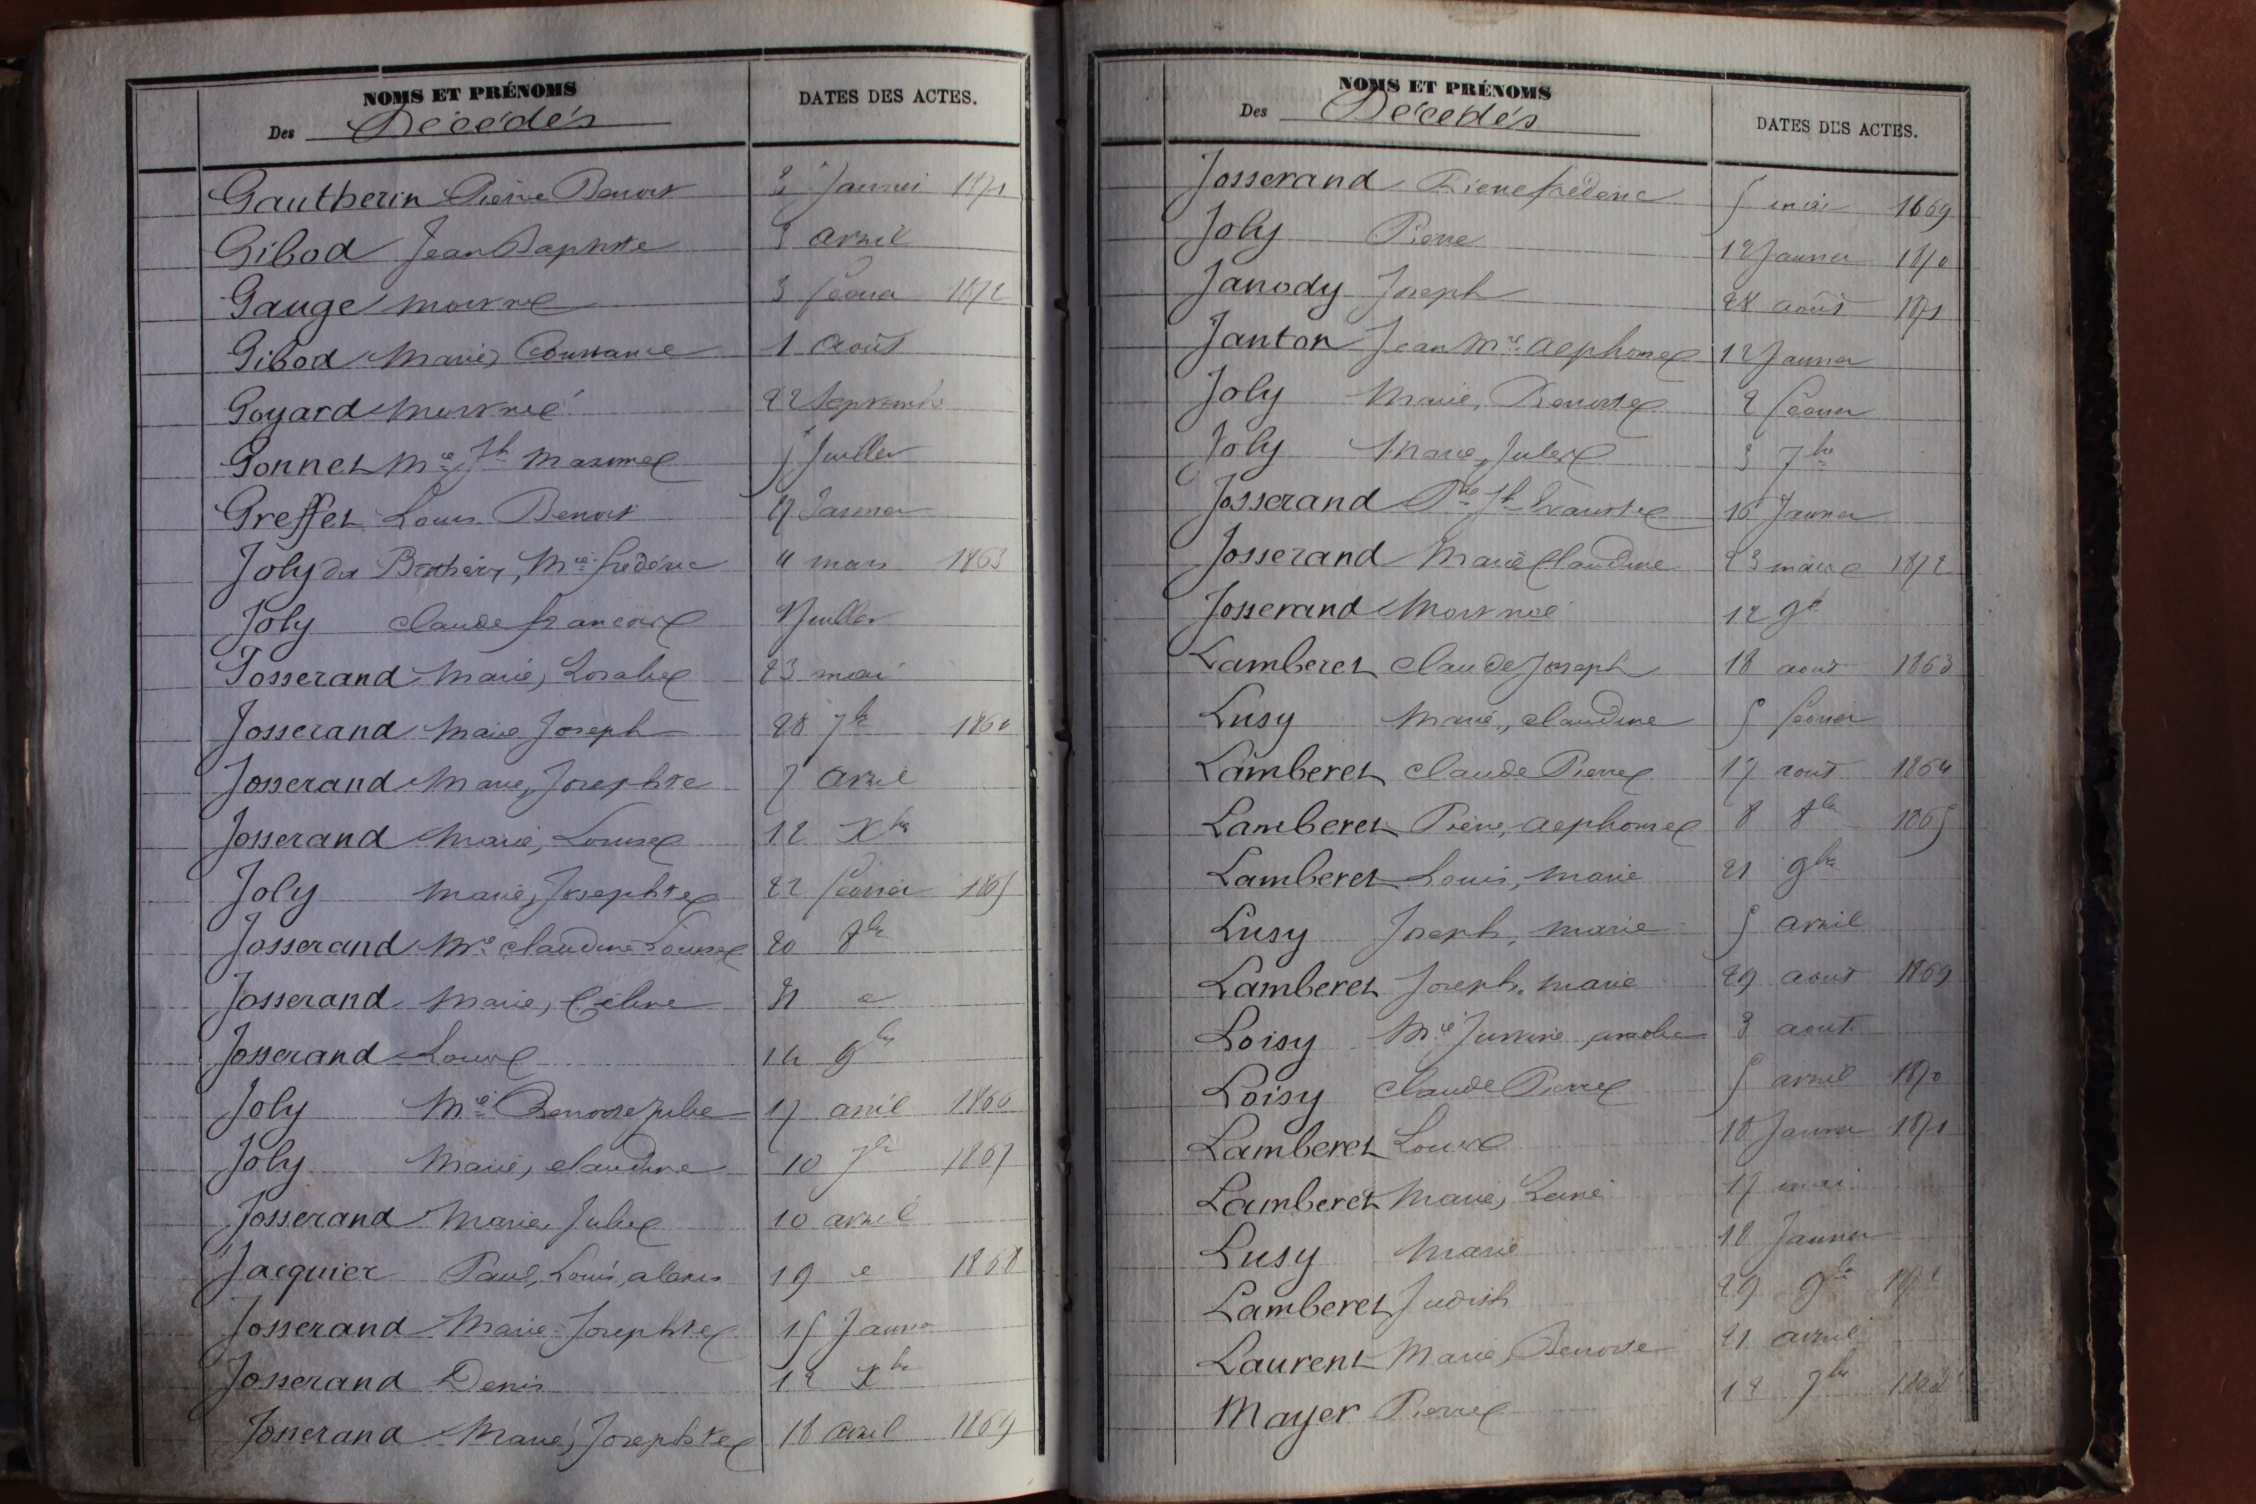 NOMS ET PRÉNOMS
Des Décédés
DATES DES ACTES.
Gautherin Pierre Benoit 3 Janvier 1871
Gibod Jean Baptiste 3 avril
Gauge mort né 3 février 1872
Gibod Marie, Constance 1 août
Goyard mort né 22 Septembre
Gonnet Mie Jh Maxime 5 Juillet
Greffet Louis Benoit 27 Janvier
Joly dit Mie frédéric 4 mars 1863
Joly claude françois Juillet
Josserand Marie, Rosalie 23 mai
Josserand Marie Joseph 28 7bre 1864
Josserand Marie, Josephte 7 avril
Josserand Marie, Louise 12 Xbre
Joly Marie, Josephte 22 février 1865
Josserand Mie claudine Louise 20 8bre
Josserand Marie, Céline 31
Josserand Louise 14 9bre
Joly Mie Benoite Julie 17 avril 1866
Joly Marie, claudine 10 7bre 1867
Josserand Marie, Julie 10 avril
Jacquier Paul, Louis, alexis 19 1868
Josserand Marie Josephte 15 Janvier
Josserand Denis 12 Xbre
Josserand Marie, Josephte 18 avril 1869
NOMS ET PRÉNOMS
Des Décédés
DATES DES ACTES.
Josserand Pierre frédéric 5 mai 1869
Joly Pierre 12 Janvier 1870
Janody Joseph 28 août 1871
Janton Jean Mie alphonse 12 Janvier
Joly Marie, Benoite 2 février
Joly Marie, Julie 3 7bre
Josserand Jh 16 Janvier
Josserand Marie Claudine 23 mars 1872
Josserand Mort né 12 9bre
Lamberet claude Joseph 18 aout 1863
Lusy Marie, claudine 5 février
Lamberet claude Pierre 17 août 1864
Lamberet Pierre, alphonse 8 8bre 1865
Lamberet Louis, marie 21 9bre
Lusy Joseph, marie 5 avril
Lamberet Joseph, marie 29 aout 1869
Loisy Mie Justine 3 aout
Loisy claude Pierre 5 avril 1870
Lamberet Louise 18 Janvier 1871
Lamberet Marie, 17 mai
Lusy Marie 18 Janvier
Lamberet Judith 29 9bre 1872
Laurent Marie, Benoite 21 avril
Mayer Pierre 12 7bre